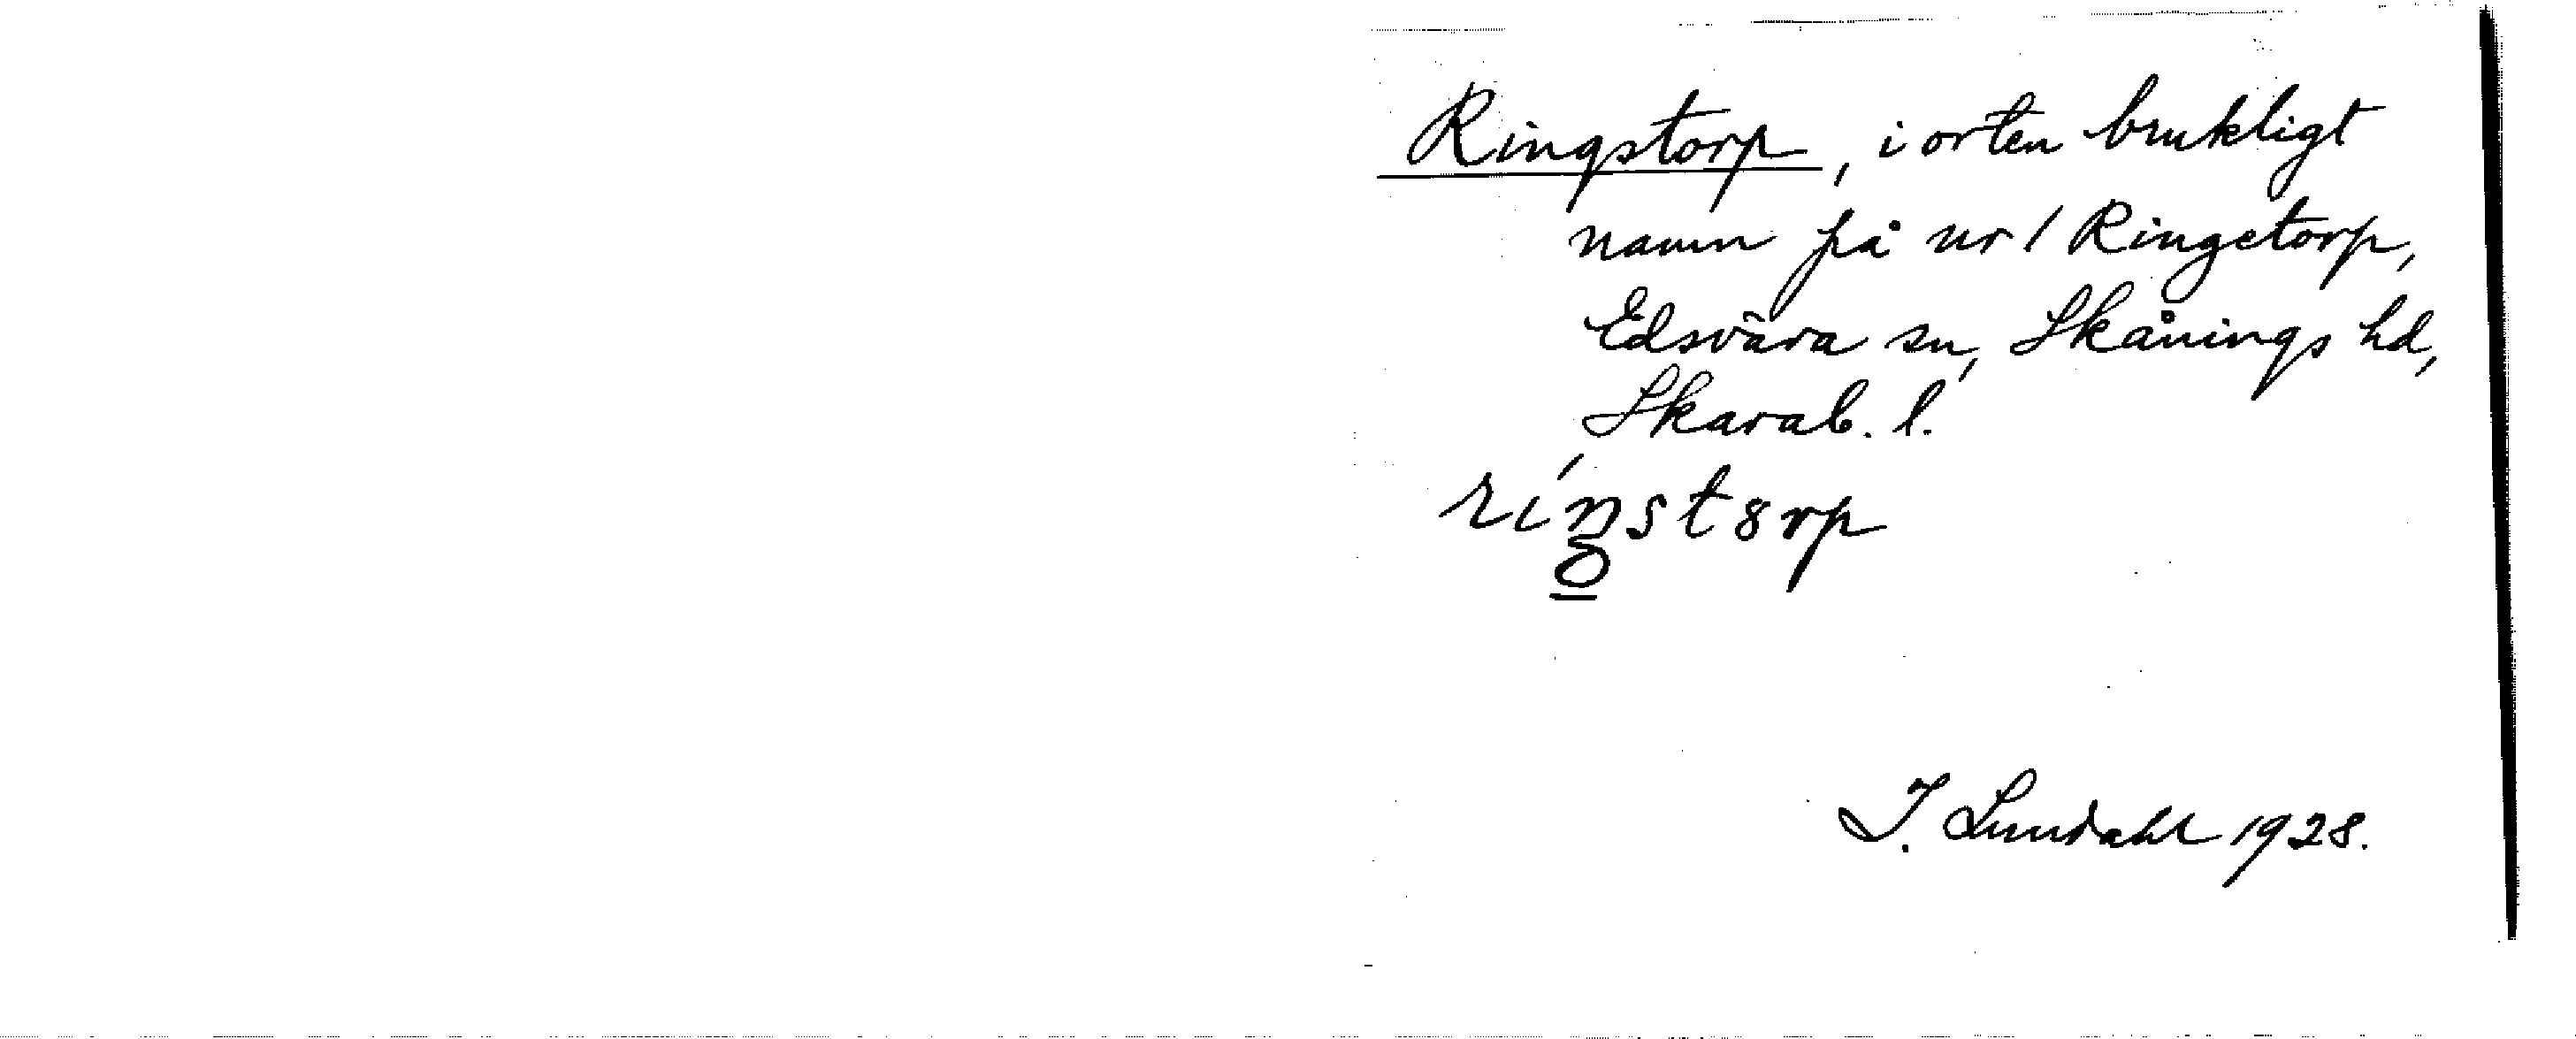 Ringstorp, i orten brukligt
namn på nr 1 Ringetorp,
Edsvära sn, Skånings hd,
Skarab. l.
I. Lundahl 1928.